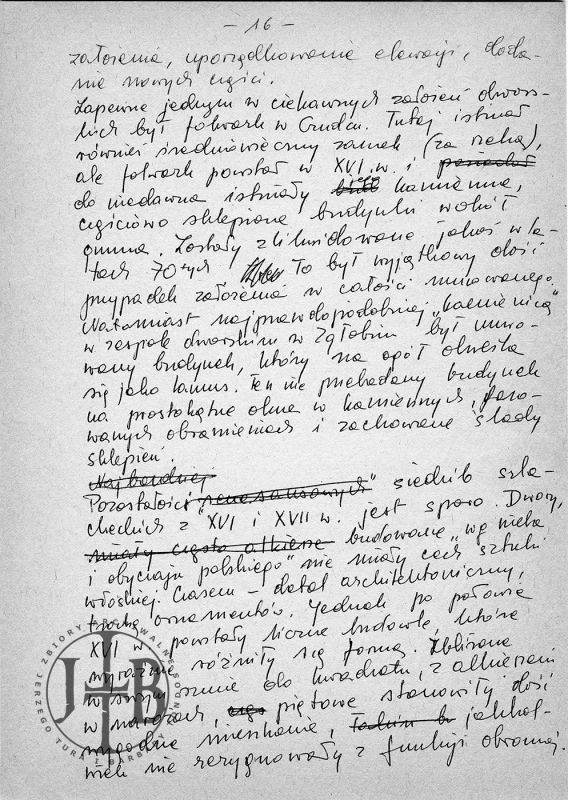 - 16 -
założenia, uporządkowanie elewacji, doda-
nie nowych części.
Zapewne jednym w ciekawych założeń dwors-
kich był folwark w Grudzu. Tutaj istniał
również średniowieczny zamek (za rzeką),
ale folwark powstał w XVI w. i posiadał
do niedawna istniały kamienne,
częściowo sklepione budynki wokół
gumna. Zostały zlikwidowane jakoś w la-
tach 70-tych. To był wyjątkowy dość
przypadek założenia w całości murowanego.
Natomiast najprawdopodobniej "kamienicą"
w zespole dworskim w Zgłobniu był muro-
wany budynek, który na ogół określa
się jako lamus. Ten nie przebadany budynek
ma prostokątne okna w kamiennych, fazo-
wanych obramieniach i zachowane ślady
sklepień.
Najbardziej
Pozostałości "renesansowych" siedzib szla-
checkich z XVI i XVII w. jest sporo. Dwory,
miały często alkierze budowane "wg nieba
i obyczaju polskiego" nie miały cech sztuki
włoskiej. Czasem - detal architektoniczny,
trochę ornamentów. Jednak po połowie
XVI w. powstały liczne budowle, które
wyraźnie różniły się formą. Zbliżone
w swym rzucie do kwadratu, z alkierzami
w narożach, piętowe stanowiły dość
wygodne mieszkanie, jakkol-
wiek nie rezygnowały z funkcji obronnej.
JERZEGO TURA I BARBARY
ZBIORY
JTB